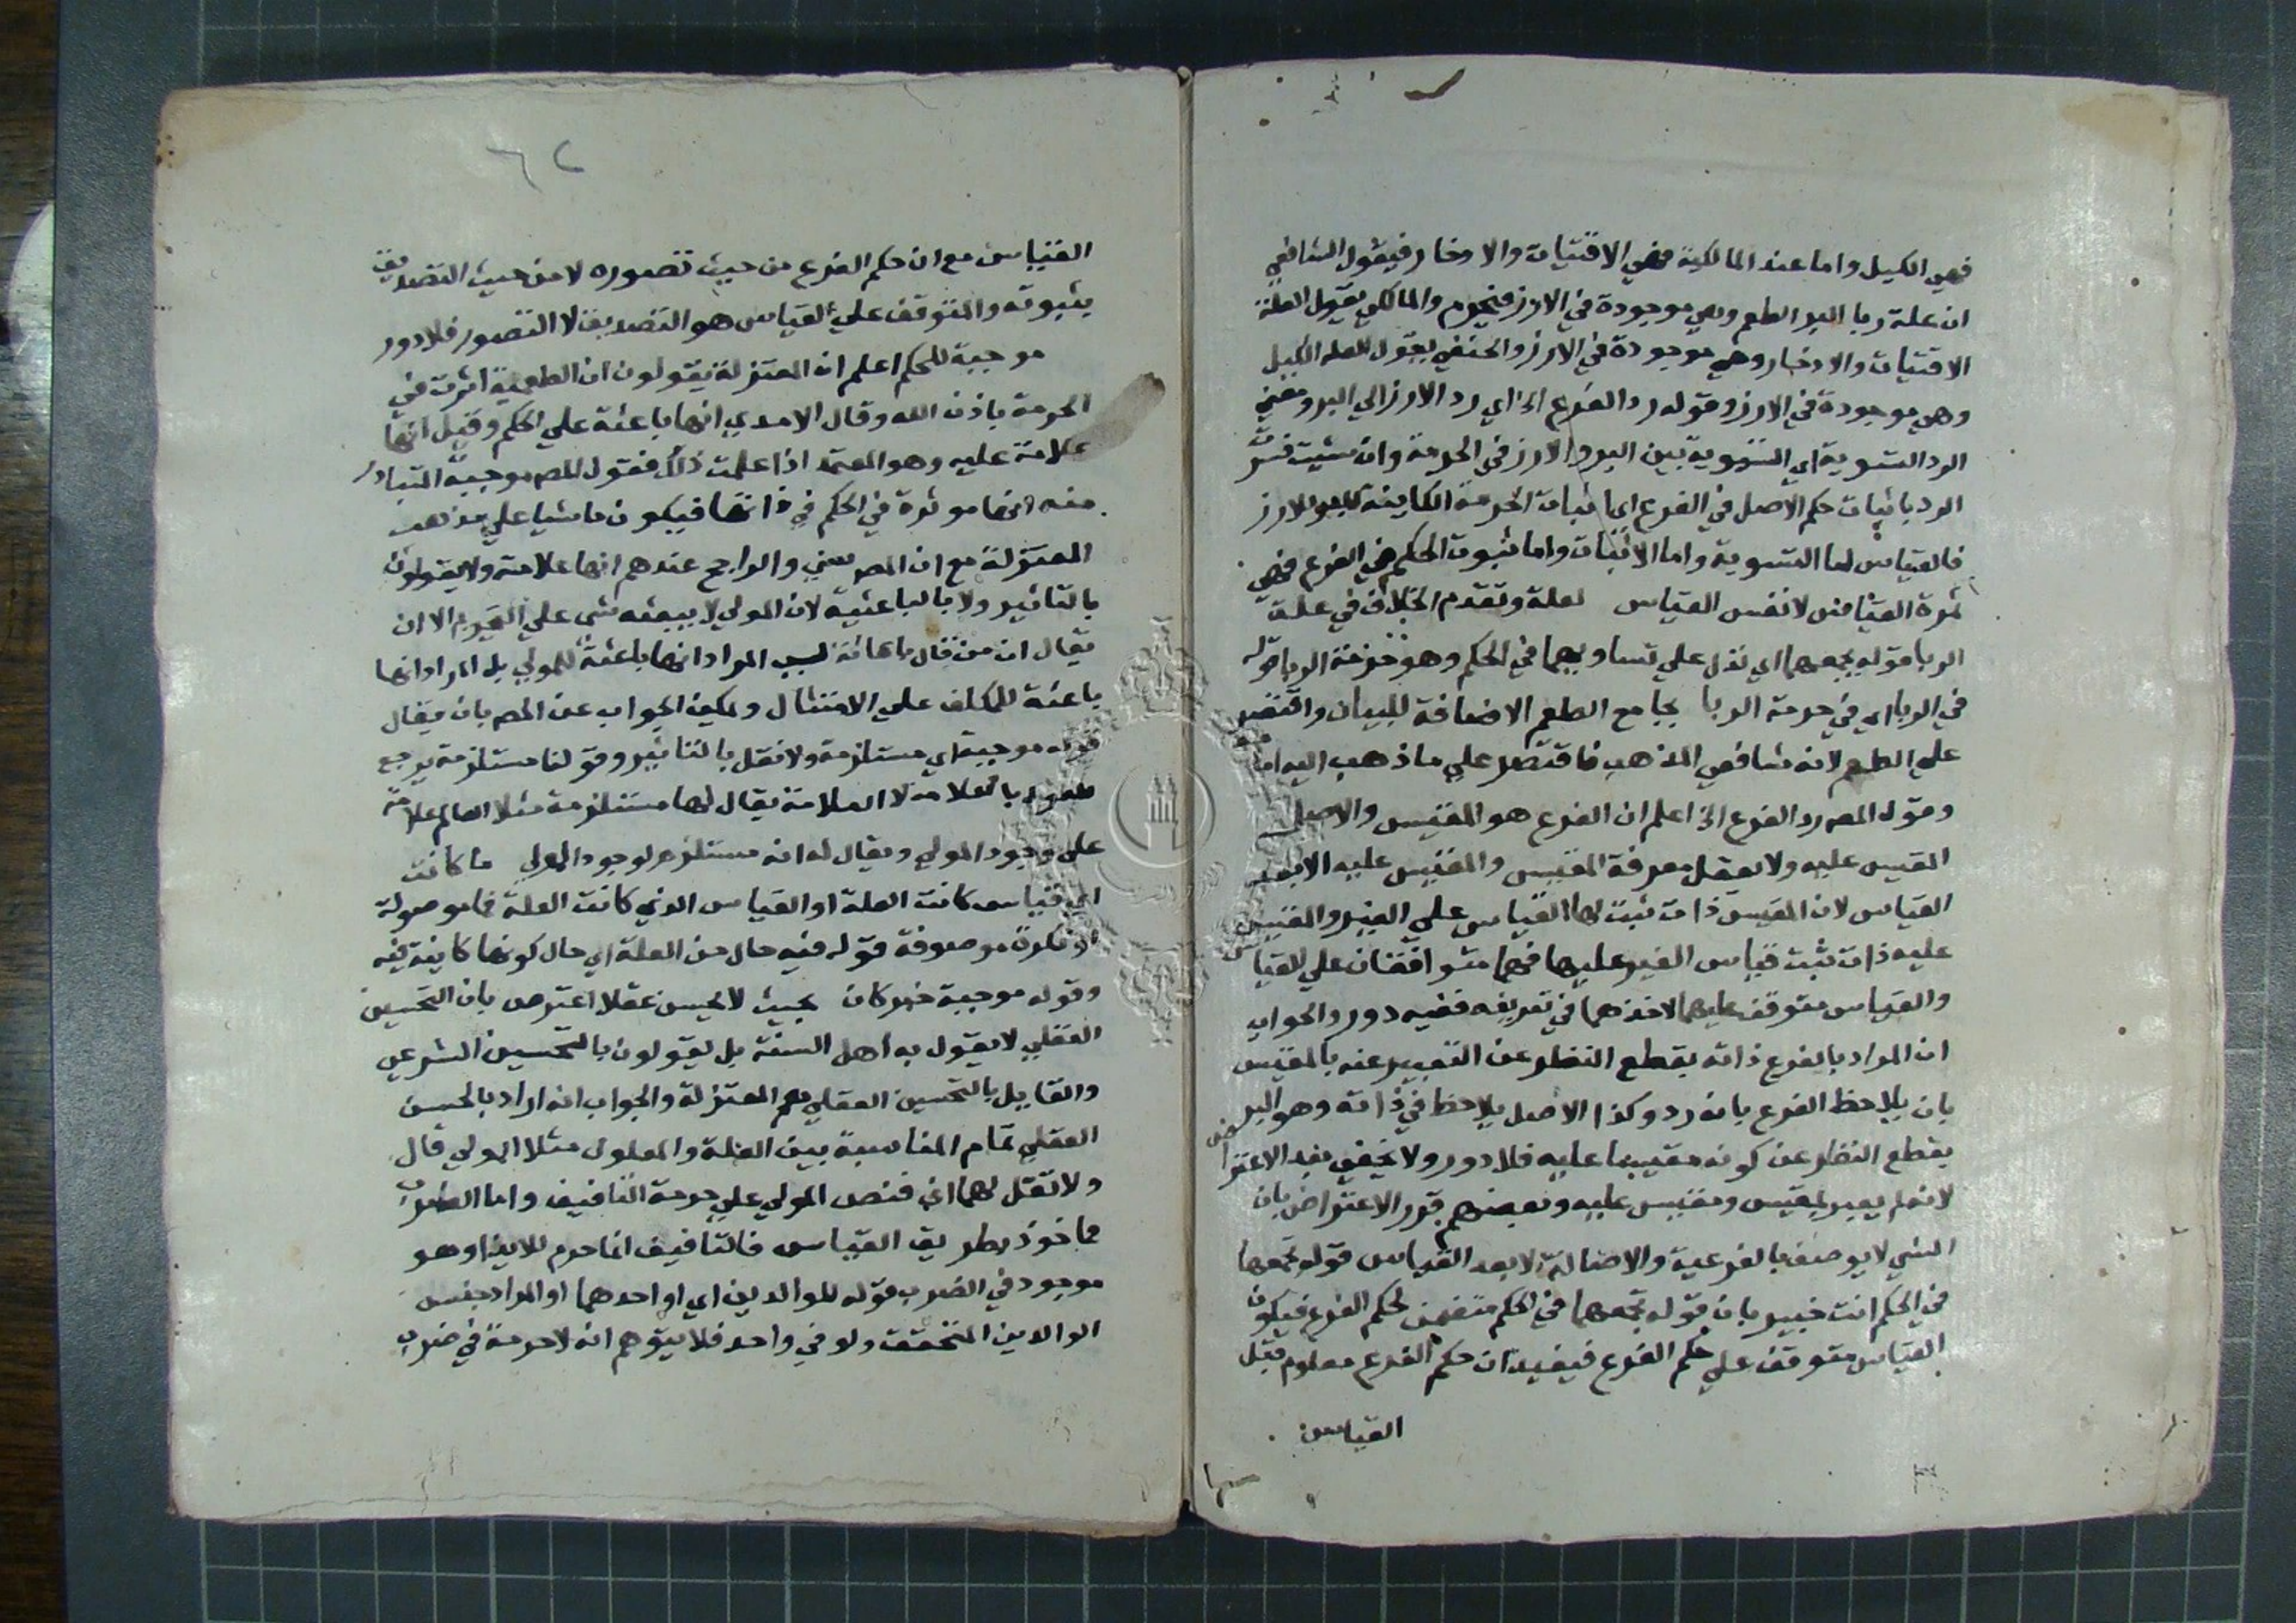 فهي الكيل واما عند المالكية فهي الاقتيات والادخار فيقول الشافعي
ان علة ربا البر الطعم وهي موجودة في الارز فيحرم والمالكي يقول العلة
الاقتيات والادخار وهي موجودة في الارز والحنفي يقول العله الكيل
وهي موجودة في الارز وقوله رد الفرع الخ اي رد الارز الي البر ومعني
الرد التسوية اي التسوية بين البر والارز في الحرمة وان شيت فسر
الرد باثبات حكم الاصل في الفرع اي اثبات الحرمة الكاينة للبر للارز
فالقياس اما التسوية واما الاثبات واما ثبوت الحكم في الفرع فهي
ثمرة القياس لا نفس القياس لعلة وتقدم الخلاف في علة
الربا قوله يجمعهما اي تدل علي تساويهما في الحكم وهو حرمة الربا قوله
في الربا اي في حرمة الربا بجامع الطعم الاضافة للبيان واقتصر
علي الطعم لانه شافعي المذهب فاقتصر علي ما ذهب اليه امامه
وقوله المص رد الفرع الخ اعلم ان الفرع هو المقيس والاصل
المقيس عليه ولا يعقل معرفة المقيس والمقيس عليه الا بعد
القياس لان المقيس ذات ثبت لها القياس علي الغير والمقيس
عليه ذات ثبت قياس الغير عليها فهما متوافقان علي القياس
والقياس متوقف عليهما لاخذهما في تعريفه ففيه دور والجواب
ان المراد بالفرع ذاته بقطع النظر عن التعبير عنه بالمقيس
بان يلاحظ الفرع بانه رد وكذا الاصل يلاحظ في ذاته وهو البر
بقطع النظر عن كونه مقيسا عليه فلا دور ولا يخفي بعد الاعتراض
لانه لم يعبر بمقيس ومقيس عليه وبعضهم قرر الاعتراض بان
الشي لا يوصف بالفرعية والاصالة الا بعد القياس قوله تجمعهما
في الحكم انت خبير بان قوله تجمعهما في الحكم متضمن لحكم الفرع فيكون
القياس متوقف علي حكم الفرع فيفيد ان حكم الفرع معلوم قبل
القياس
٦٢
القياس مع ان حكم الفرع من حيث تصوره لا من حيث التصديق
بثبوته والمتوقف علي القياس هو التصديق لا التصور فلا دور
موجبة للحكم اعلم ان المعتزلة يقولون ان الطعمية اثرت في
الحرمة باذن الله وقال الامدي انها باعثة علي الحكم وقيل انها
علامة عليه وهو المعتمد اذا علمت ذلك فقول المص موجبة المتبادر
منه انها موثرة في الحكم في ذاتها فيكون ماشيا علي مذهب
المعتزلة مع ان المص سني والراجح عندهم انها علامة ولا يقولون
بالتاثير ولا بالباعثية لان المولي لا يبعثه شي علي التحريم الا ان
يقال ان من قال باعثة ليس المراد انها باعثة للمولي بل المراد انها
باعثة للمكلف علي الامتثال ويمكن الجواب عن المص بان يقال
قوله موجبة اي مستلزمة ولا نقل بالتاثير وقولنا مستلزمة يرجع
بالعلامة لا العلامة يقال لها مستلزمة مثلا العالم علامة
علي وجود المولي ويقال له انه مستلزم لوجود المولي ما كانت
اي قياس كانت العلة او القياس الذي كانت العلة فما موصولة
او نكرة موصوفة قوله فيه حال من العلة اي حال كونها كاينة فيه
وقوله موجبة خبر كان بحيث لا يحسن عقلا اعترض بان التحسين
العقلي لا يقول به اهل السنة بل يقولون بالتحسين الشرعي
والقايل بالتحسين العقلي هم المعتزلة والجواب انه اراد بالحسن
العقلي تمام المناسبة بين العلة والمعلول مثلا المولي قال
ولا تقل لهما اف فنص المولي علي حرمة التافيف واما الضرب
فماخوذ بطريق القياس فالتافيف انما حرم للايذا وهو
موجود في الضرب قوله للوالدين اي او احدهما او المراد جنس
الوالدين المتحقق ولو في واحد فلا يتوهم انه لا حرمة في ضرب